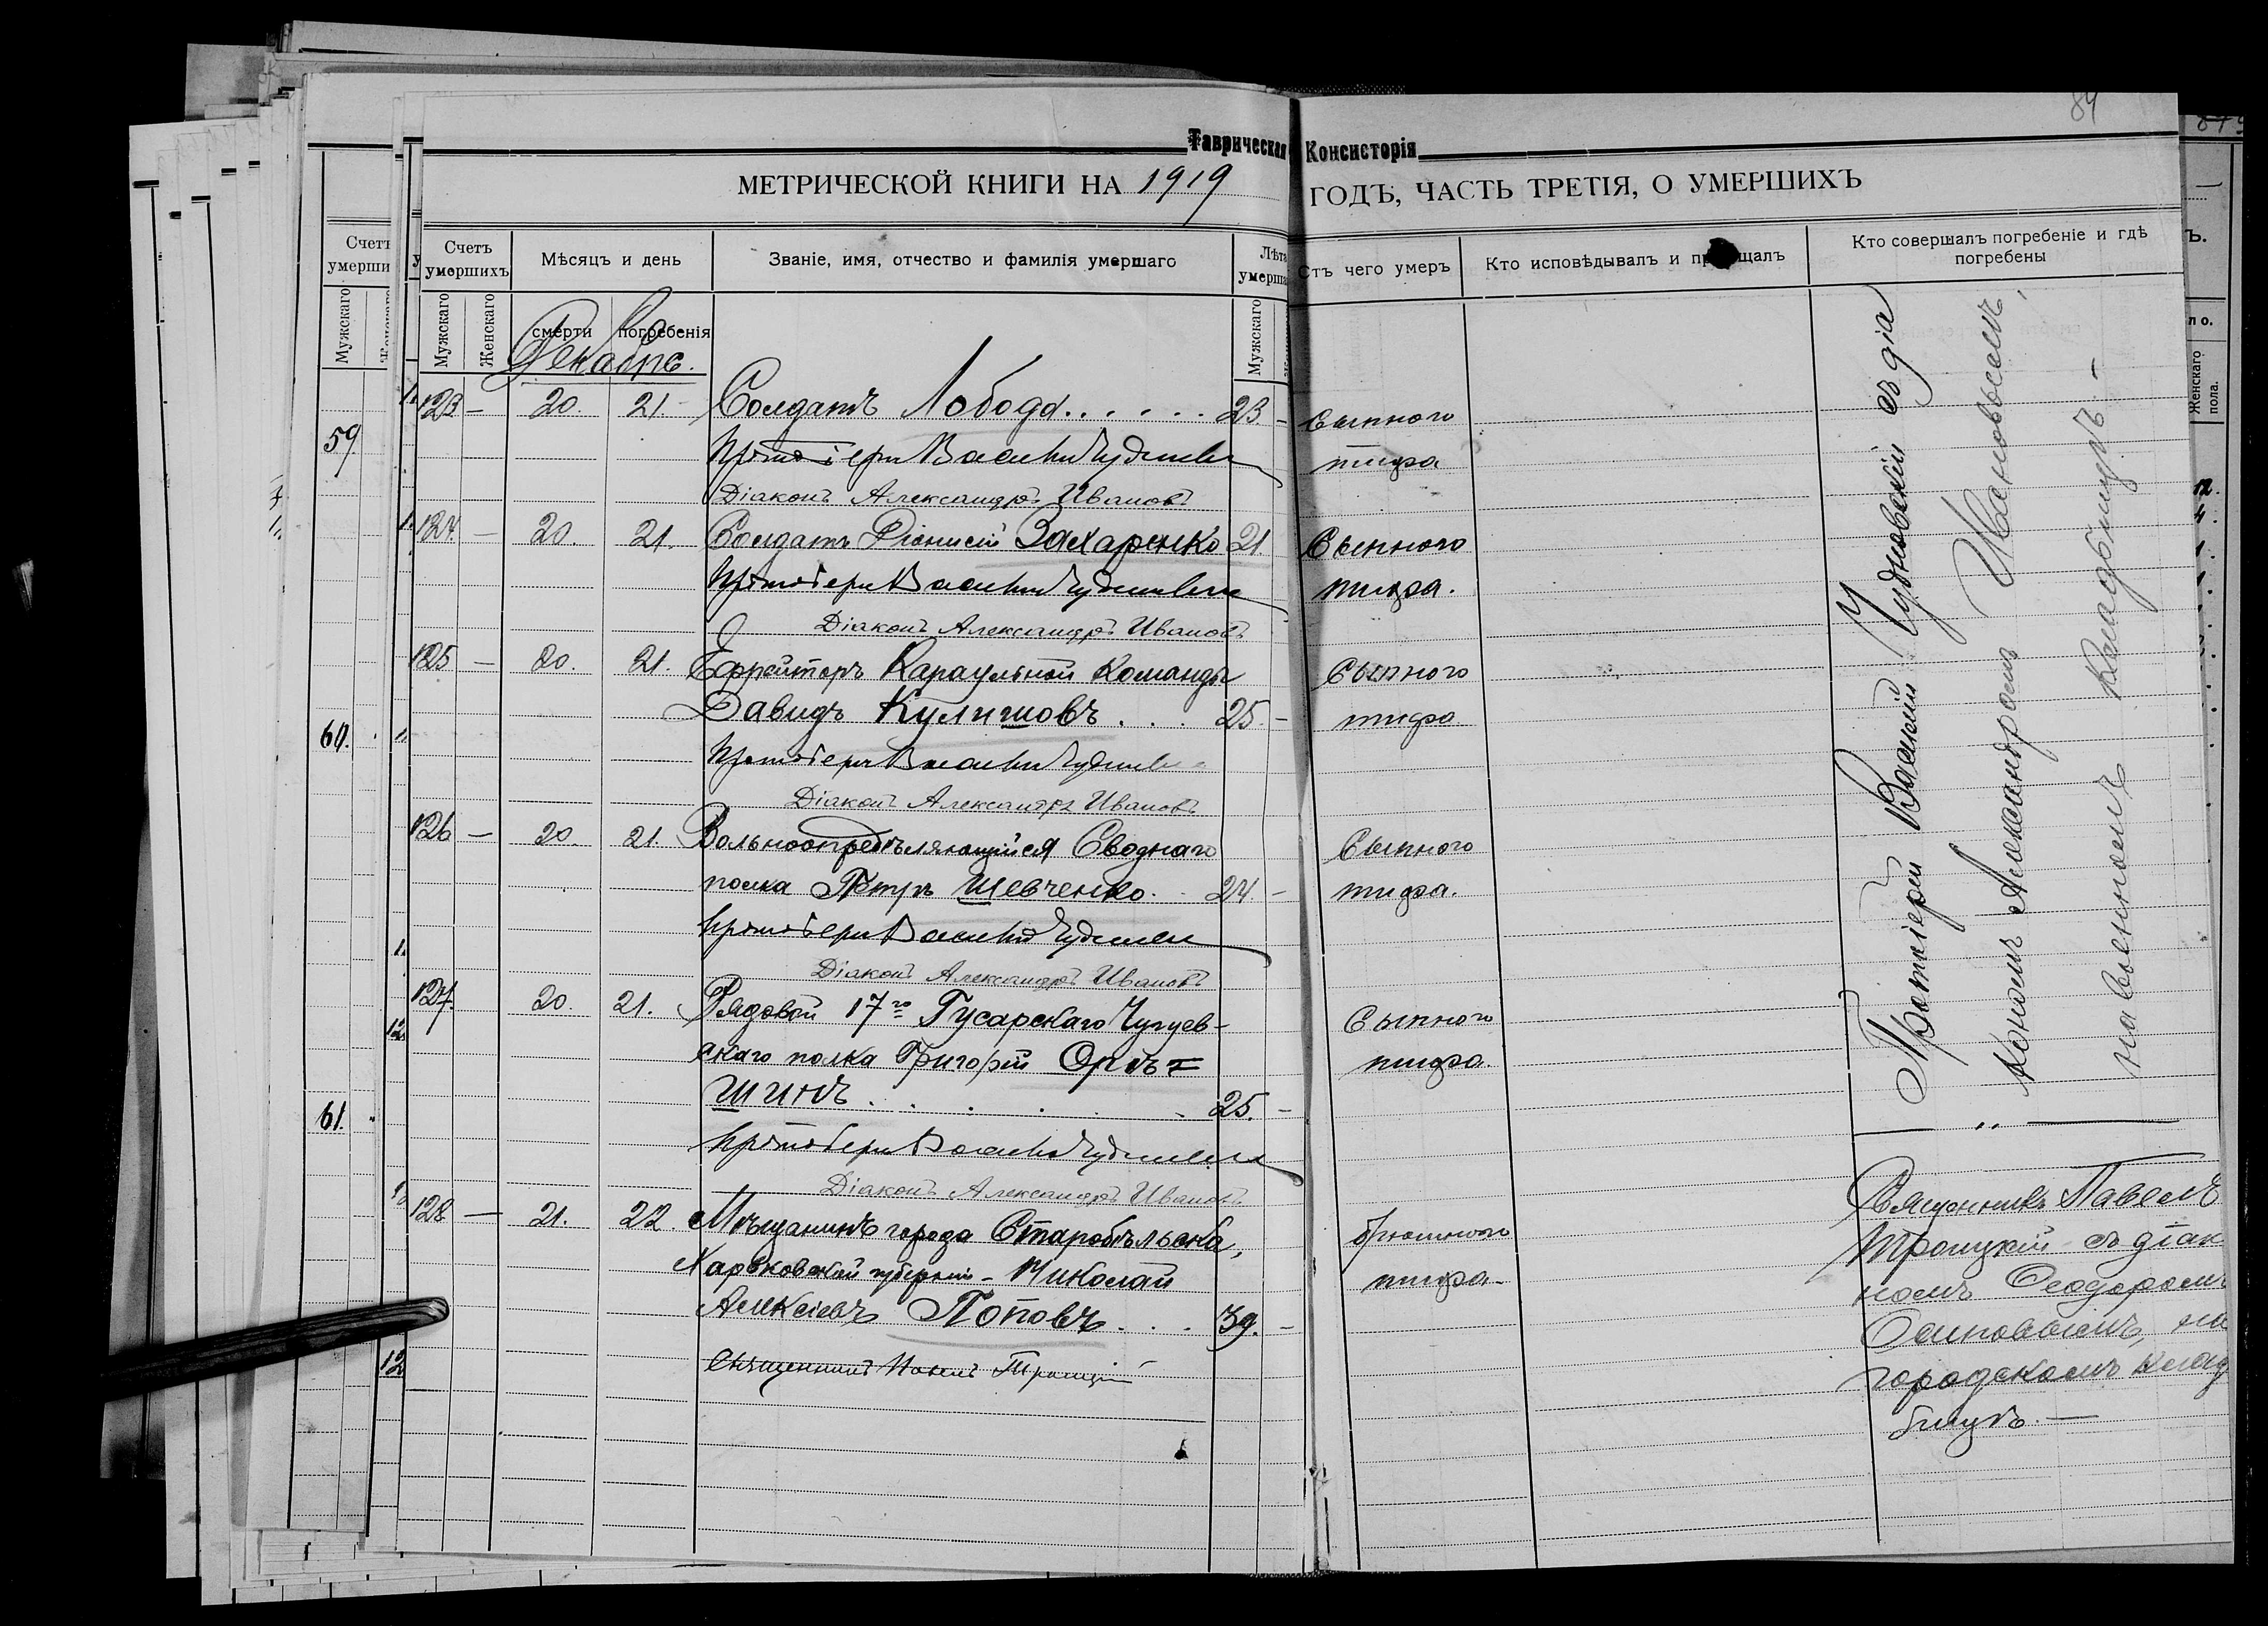 84
Таврическая Консисторія
МЕТРИЧЕСКОЙ КНИГИ НА 1919 ГОДЪ, ЧАСТЬ ТРЕТІЯ, О УМЕРШИХЪ
Счетъ умершихъ
Мѣсяцъ и день
Званіе, имя, отчество и фамилія умершаго
Лѣта
Отъ чего умеръ
Кто исповѣдывалъ и
Кто совершалъ погребеніе и гдѣ погребены
Мужскаго
Женскаго
смерти
погребенія
Мужскаго
Декабрь.
123 — 20. 21. Солдатъ Лобода...... 23 — Сыпного
Протоіерей Василій Чудновскій тифа
Діаконъ Александръ Ивановъ
124. — 20. 21. Солдатъ Діонисій Захаренко 21. Сыпного
Протоіерей Василій Чудновскій тифа.
Діаконъ Александръ Ивановъ
125 — 20. 21. Ефрейторъ Караульной Команды Сыпного
Давидъ Кулишовъ... 25. — тифа
Протоіерей Василій Чудновскій
Діаконъ Александръ Ивановъ
126 — 20. 21. Вольноопредѣляющійся Сводного Сыпного
полка Петръ Шевченко.. 24. — тифа.
Протоіерей Василій Чудновскій
Діаконъ Александръ Ивановъ
127. 20. 21. Рядовой 17го Гусарскаго Чугуев- Сыпного
скаго полка Григорій Орѣ= тифа.
шинъ..... 25. —
Протоіерей Василій Чудновскій
Діаконъ Александръ Ивановъ
Протоіерей Василій Чудновскій съ діа
кономъ Александромъ Ивановымъ,
на военномъ кладбищѣ. —
128 — 21. 22. Мѣщанинъ города Старобѣльска, брюшного
Харьковской губерніи - Николай тифа —
Алексѣевъ Поповъ... 39. —
Священникъ Павелъ Троицкій
Священникъ Павелъ
Троицкій съ діак
номъ Ѳеодоромъ
Осиповымъ, на
городскомъ клад
бищѣ. —
59.
60.
61.
Женскаго пола.